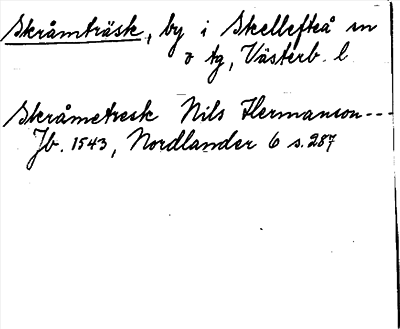 Skråmträsk, by i Skellefteå sn
o tg, Västerb. l.
Skråmetresk Nils Hermanson ---
Jb. 1543, Nordlander 6 s. 287